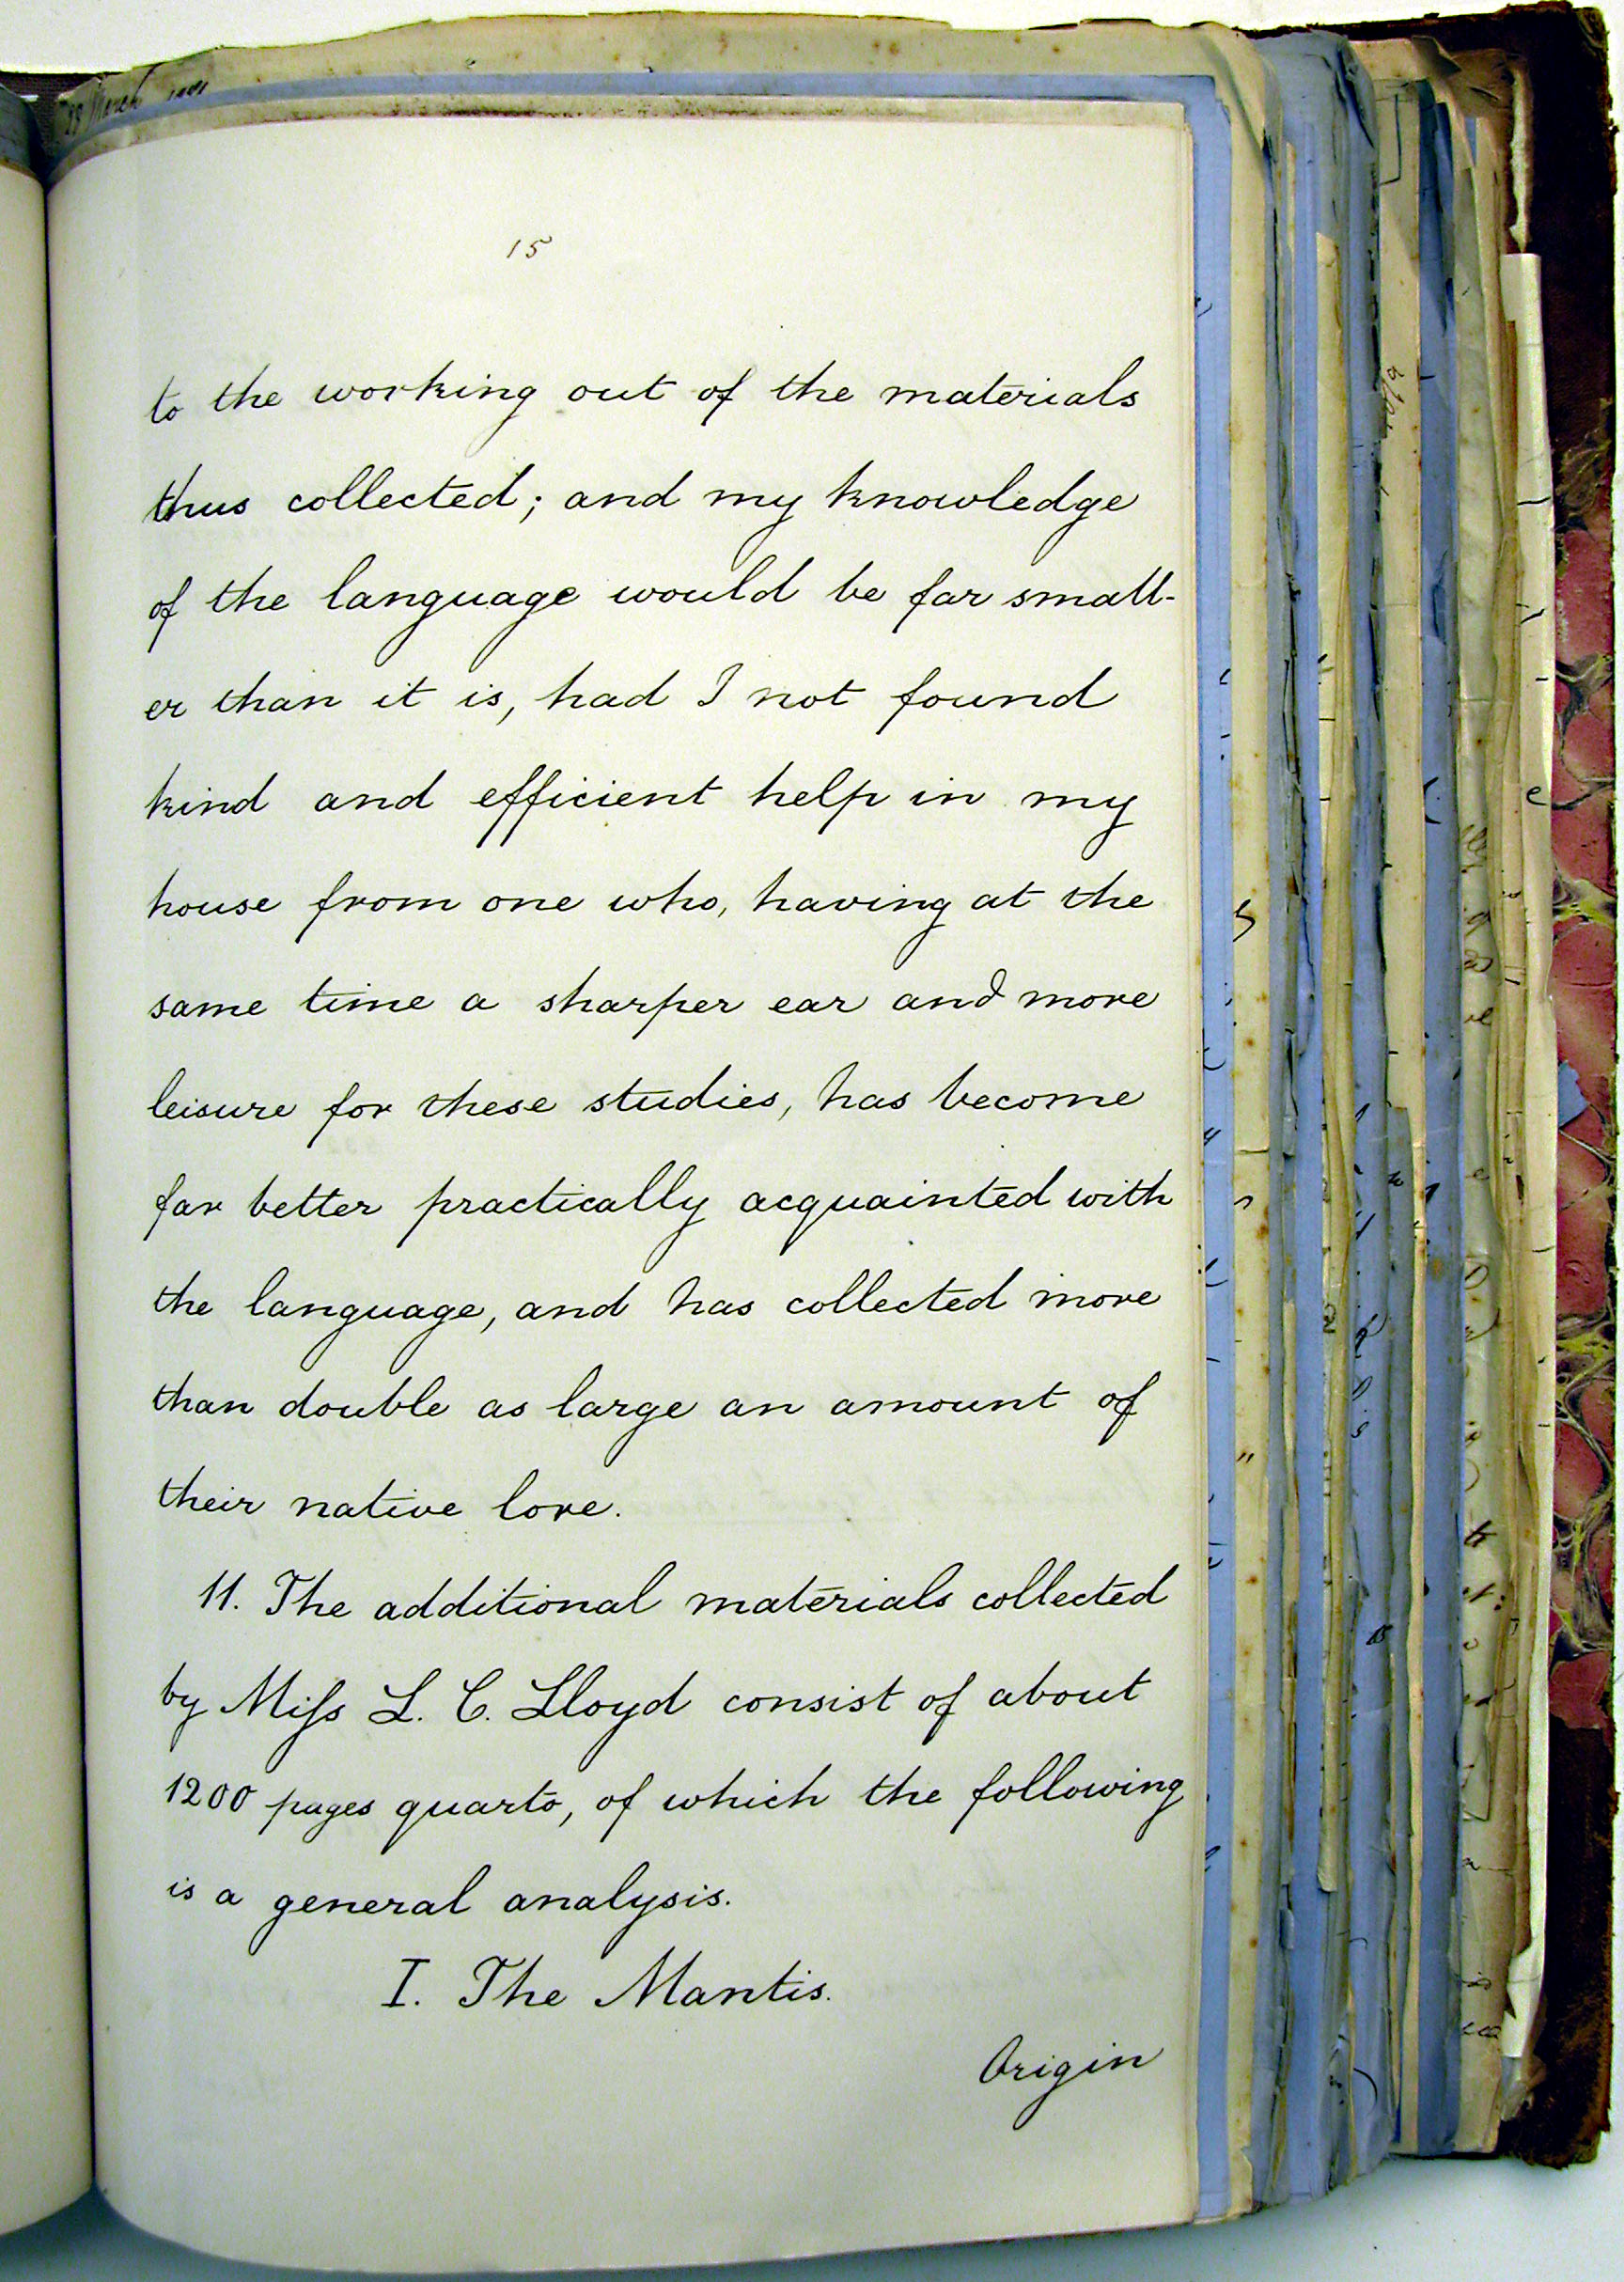 29 March
15
to the working out of the materials
thus collected; and my knowledge
of the language would be far small-
er than it is, had I not found
kind and efficient help in my
house from one who, having at the
same time a sharper ear and more
leisure for these studies, has become
far better practically acquainted with
the language, and has collected more
than double as large an amount of
their native lore.
11. The additional materials collected
by Miſs L. C. Lloyd consist of about
1200 pages quarto, of which the following
is a general analysis.
I. The Mantis.
Origin